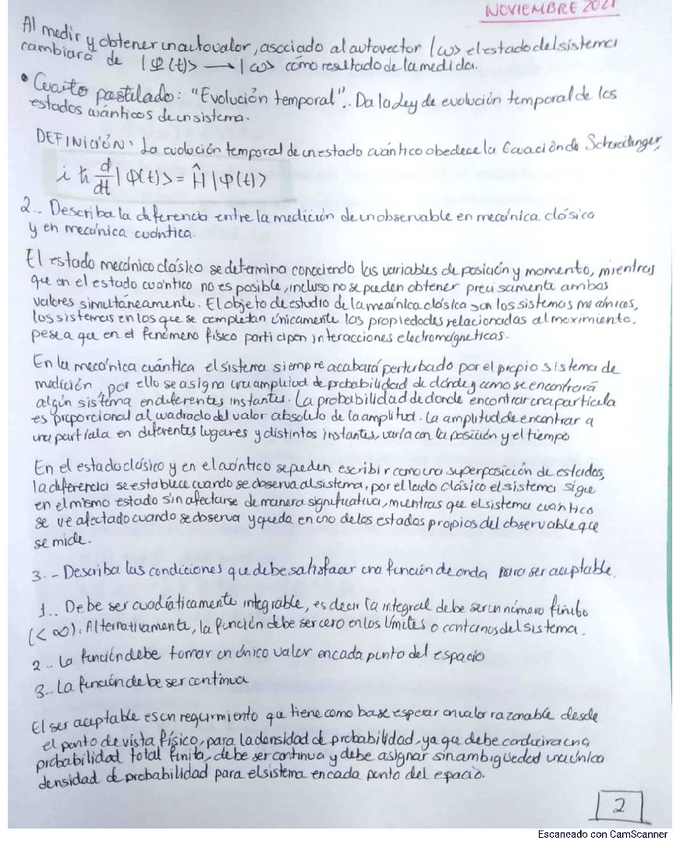 NOVIEMBRE 2021
Al medir y obtener un autovalor, asociado al autovector |ω> el estado del sistema
cambiará de |φ(t)> → |ω> como resultado de la medida.
• Cuarto postulado: "Evolución temporal". Da la ley de evolución temporal de los
estados cuánticos de un sistema.
DEFINICIÓN: La evolución temporal de un estado cuántico obedece la Ecuación de Schördinger,
i ħ d/dt |φ(t)> = Ĥ |φ(t)>
2.- Describa la diferencia entre la medición de un observable en mecánica clásica
y en mecánica cuántica.
El estado mecánico clásico se determina conociendo las variables de posición y momento, mientras
que en el estado cuántico no es posible, incluso no se pueden obtener precisamente ambos
valores simultáneamente. El objeto de estudio de la mecánica clásica son los sistemas mecánicos,
los sistemas en los que se completan únicamente las propiedades relacionadas al movimiento,
pese a que en el fenómeno físico participen interacciones electromagnéticas.
En la mecánica cuántica el sistema siempre acabará perturbado por el propio sistema de
medición, por ello se asigna una amplitud de probabilidad de dónde y como se encontrará
algún sistema en diferentes instantes. La probabilidad de donde encontrar una partícula
es proporcional al cuadrado del valor absoluto de la amplitud. La amplitud de encontrar a
una partícula en diferentes lugares y distintos instantes, varía con la posición y el tiempo
En el estado clásico y en el cuántico se pueden escribir como una superposición de estados,
la diferencia se establece cuando se observa al sistema, por el lado clásico el sistema sigue
en el mismo estado sin afectarse de manera significativa, mientras que el sistema cuántico
se ve afectado cuando se observa y queda en uno de los estados propios del observable que
se mide.
3.- Describa las condiciones que debe satisfacer una función de onda para ser aceptable.
1.. Debe ser cuadráticamente integrable, es decir la integral debe ser un número finito
(< ∞). Alternativamente, la función debe ser cero en los límites o contornos del sistema.
2.. La función debe tomar un único valor en cada punto del espacio
3.. La función debe ser continua
El ser aceptable es un requrimiento que tiene como base esperar un valor razonable desde
el punto de vista físico, para la densidad de probabilidad, ya que debe conducir a una
probabilidad total finita, debe ser continua y debe asignar sin ambigüedad una única
densidad de probabilidad para el sistema en cada punto del espacio.
2
Escaneado con CamScanner